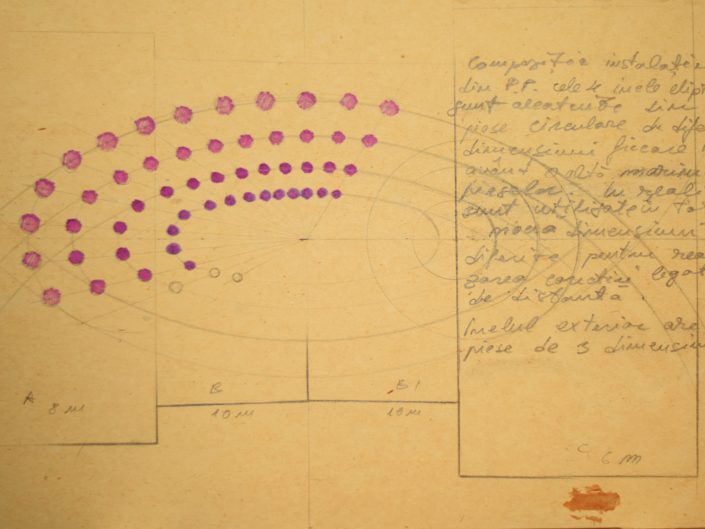 Compoziția instalație
din P.P. cele 4 inele elip
sunt alcatuite din
piese circulare de dife
dimensiuni fiecare
având o altă mărime
pieselor. In reali
sunt utilizate in to
dimensiuni
diferite pentru rea
zarea legat
de distanță.
Inelul exterior are
piese de 3 dimensiun
A 8 m
B 10 m
B1 10 m
C 6 m